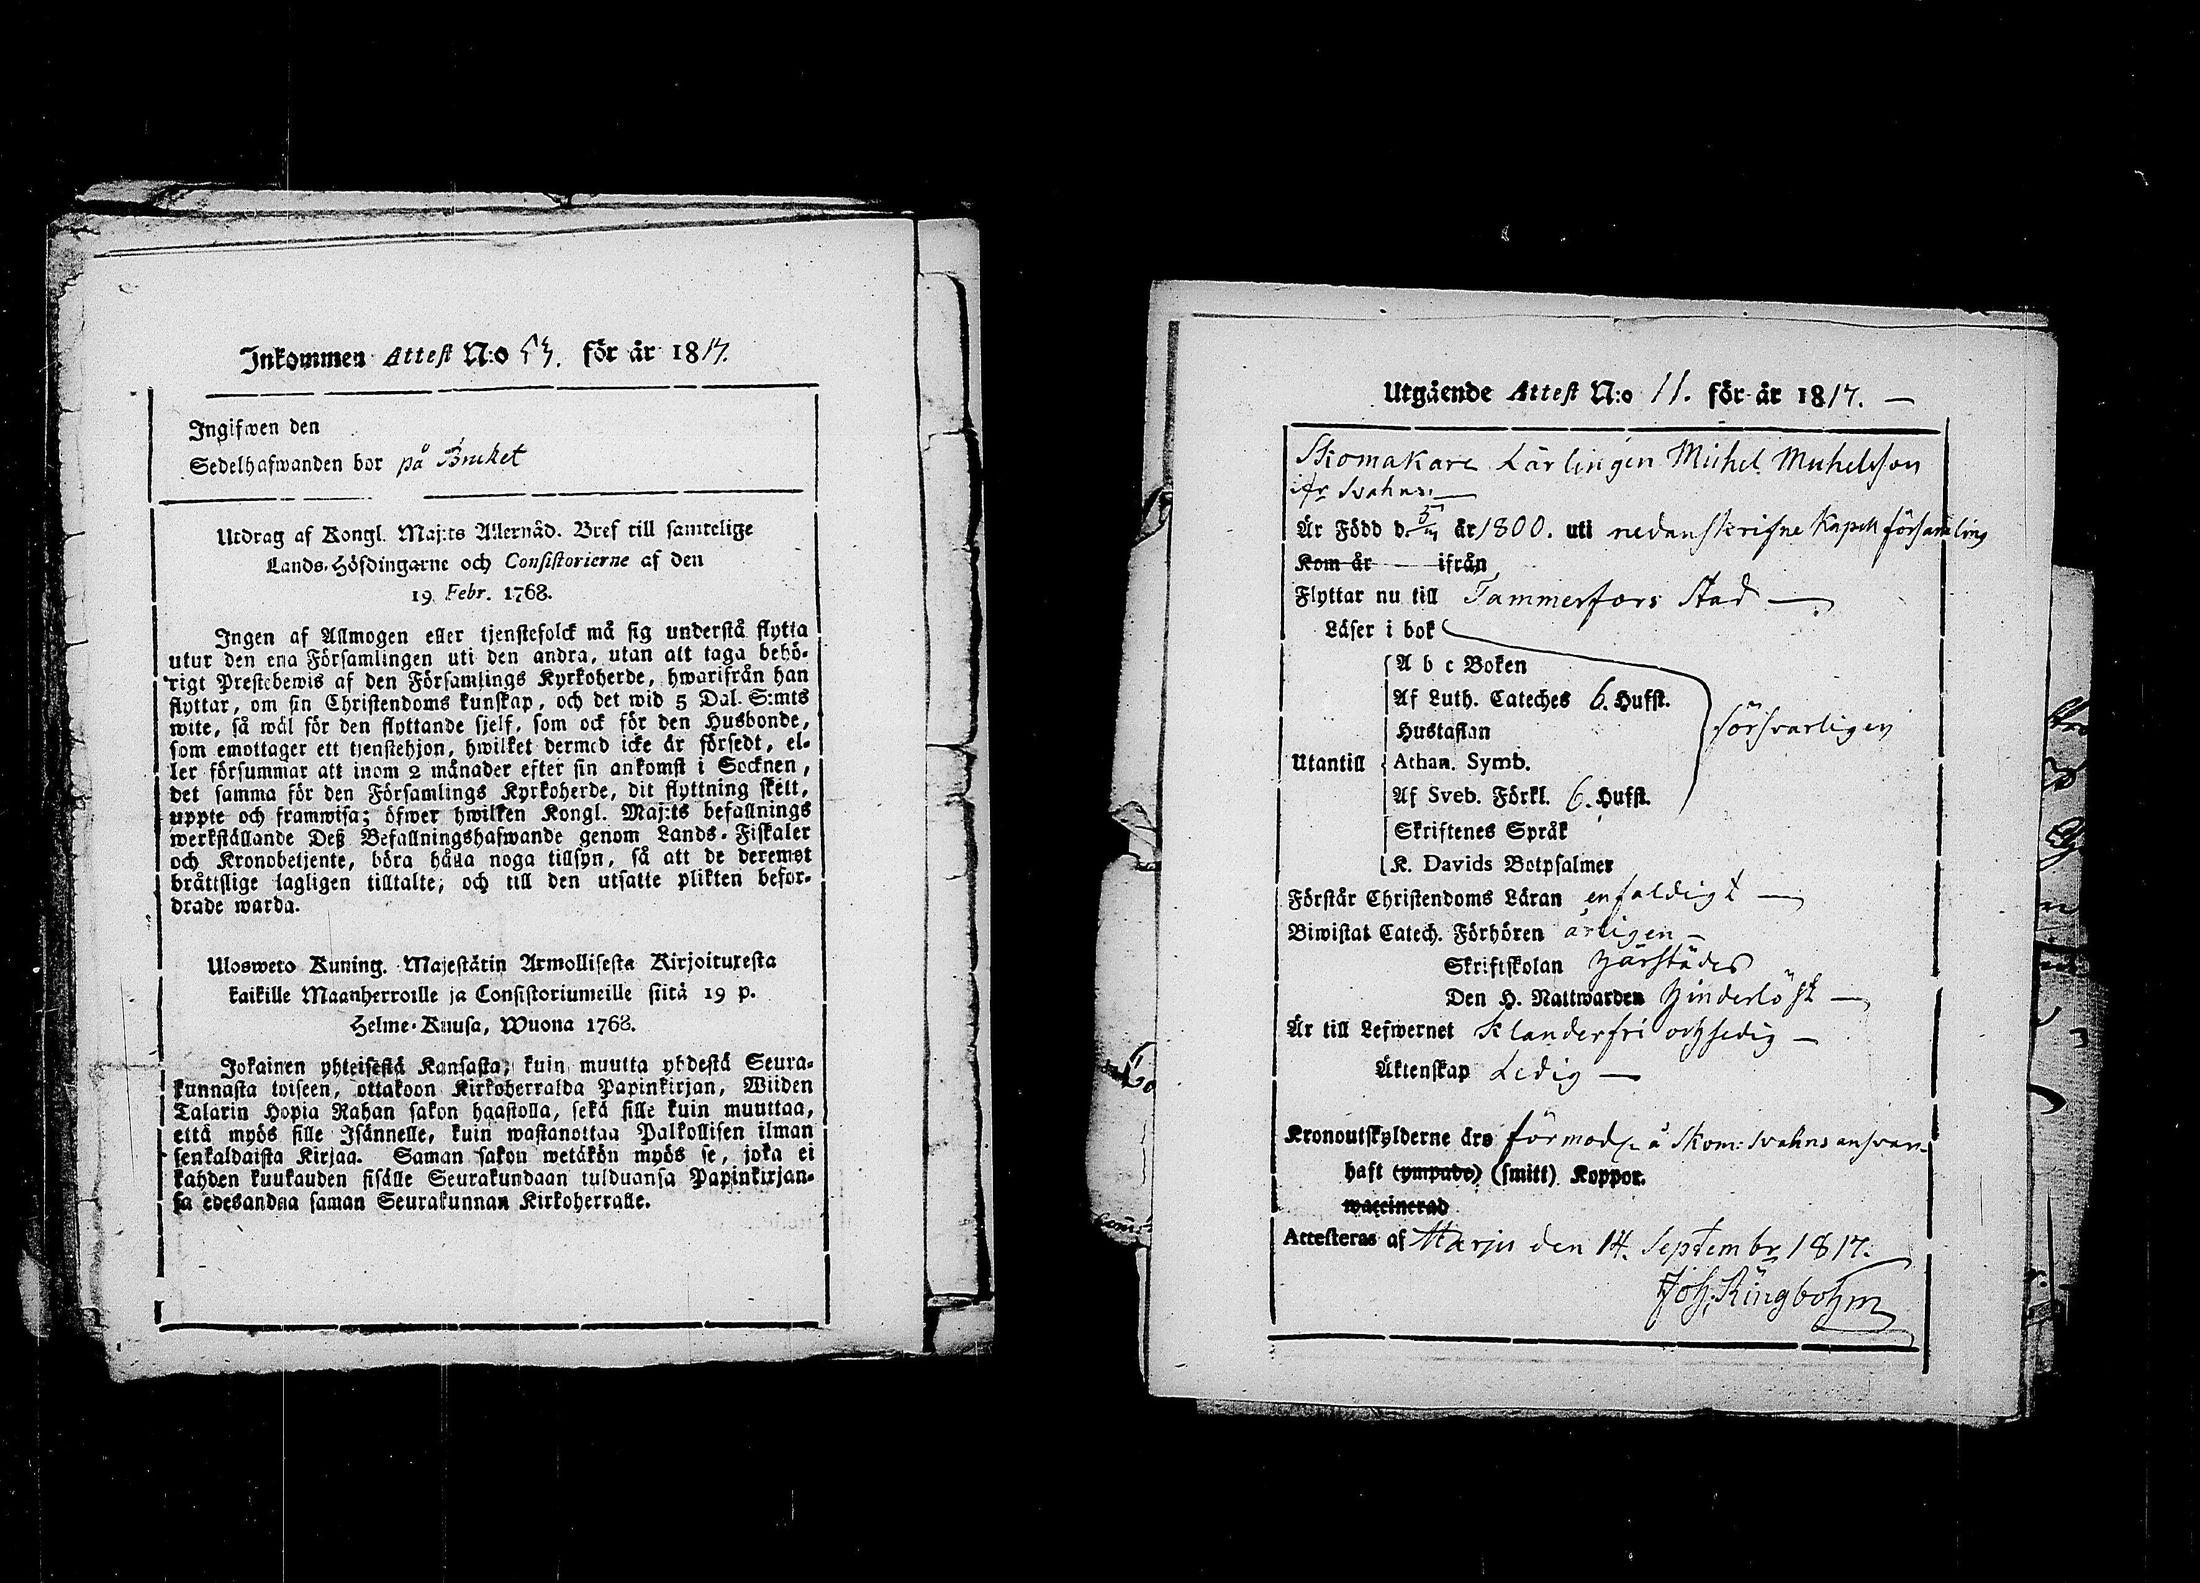 Inkommen Attest N:o 53. för år 1817.
Ingifwen den
Sedelhafwanden bor på Bruket
Utdrag af Kongl. Maj:ts Allernåd. Bref till samtelige
Lands-Höfdingarne och Consistorierne af den
19 Febr. 1768.
Ingen af Allmogen eller tjenstefolck må sig understå flytta
utur den ena Församlingen uti den andra, utan att taga behö-
rigt Prestebewis af den Församlings Kyrkoherde, hwarifrån han
flyttar, om sin Christendoms kunskap, och det wid 5 Dal. S:mts
wite, så wäl för den flyttande sjelf, som ock för den Husbonde,
som emottager ett tjenstehjon, hwilket dermed icke är försedt, el-
ler försummar att inom 2 månader efter sin ankomst i Socknen,
det samma för den Församlings Kyrkoherde, dit flyttning skett,
uppte och framwisa; öfwer hwilken Kongl. Maj:ts befallnings
werkställande Deß Befallningshafwande genom Lands-Fiskaler
och Kronobetjente, böra hålla noga tillsyn, så att de deremot
bråttslige lagligen tilltalte, och till den utsatte plikten befor-
drade warda.
Ulosweto Kuning. Majestätin Armollisesta Kirjoituxesta
kaikille Maanherroille ja Consistoriumeille siitä 19 p.
Helme-Kuusa, Wuona 1768.
Jokainen yhteisestä Kansasta, kuin muutta yhdestä Seura-
kunnasta toiseen, ottakoon Kirkoherralda Papinkirjan, Wiiden
Talarin Hopia Rahan sakon haastolla, sekä sille kuin muuttaa,
että myös sille Isännelle, kuin wastanottaa Palkollisen ilman
senkaldaista Kirjaa. Saman sakon wetäkön myös se, joka ei
kahden kuukauden sisälle Seurakundaan tulduansa Papinkirjan-
sa edesandaa saman Seurakunnan Kirkoherralle.
Utgående Attest N:o 11. för år 1817.
Skomakare Lärlingen Michel Michelsson
ifr Svahns
Är Född d. år 1800. uti nedanskrifne Kapell församling
Kom år ifrån
Flyttar nu till Tammerfors Stad
Läser i bok
A b c Boken
Af Luth. Cateches 6. Hufst.
Hustaflan
försvarligen
Utantill Athan. Symb.
Af Sveb. Förkl. 6. Hufst.
Skriftenes Språk
K. Davids Botpsalmer
Förstår Christendoms Läran enfaldigt
Biwistat Catech. Förhören årligen
Skriftskolan härstädes
Den H. Nattwarden hinderlöst
Är till Lefwernet Klanderfri och sedig
Äktenskap Ledig
Kronoutskylderne äro förmod. å Skom: Svahns answar
haft (ympade) (smitt) Koppor.
waccinerad
Attesteras af Harju den 14. Septembr 1817.
Joh. Ringbohm